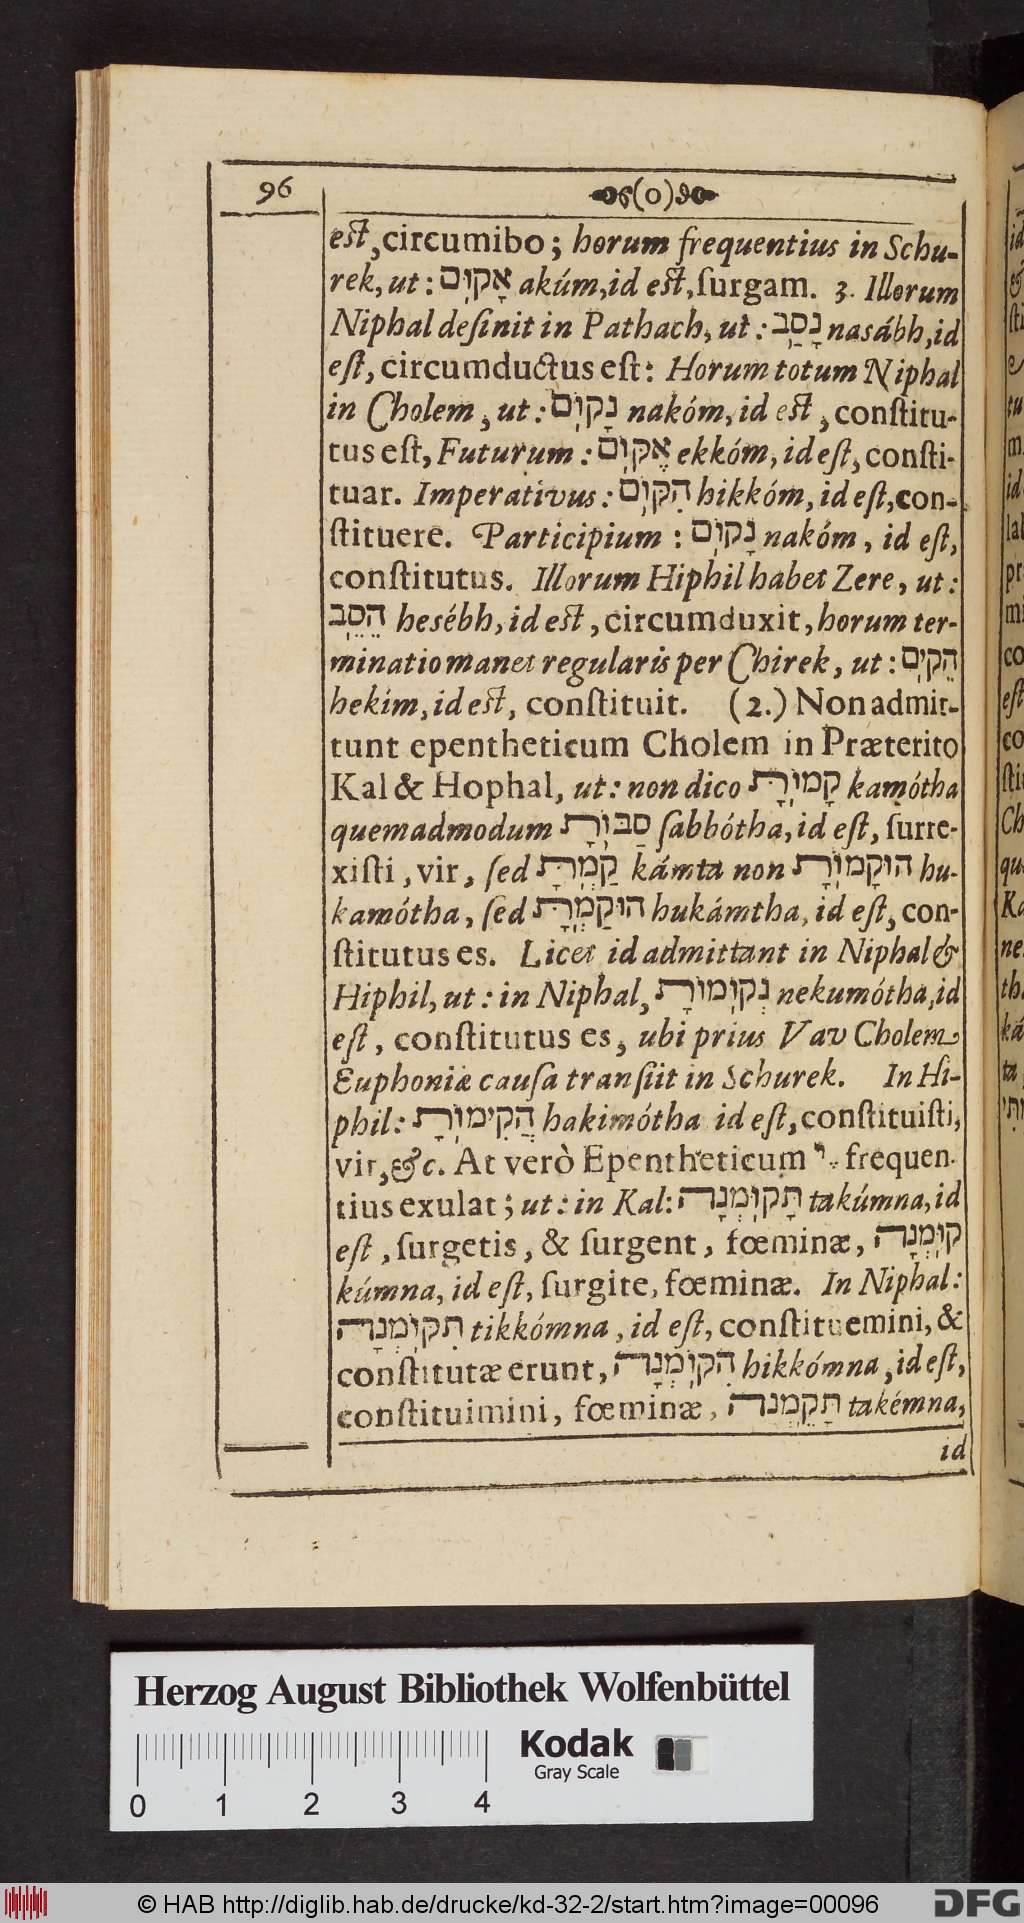 96 (o)
est, circumibo; horum frequentius in Schu-
rek, ut: אָקוּם akúm, id est, ſurgam. 3. Illorum
Niphal deſinit in Pathach, ut: נָסַב nasábh, id
eſt, circumductus eſt: Horum totum Niphal
in Cholem, ut: נָקוֹם nakóm, id est, conſtitu-
tus eſt, Futurum: אֶקוֹם ekkóm, id eſt, conſti-
tuar. Imperativus: הִקוֹם hikkóm, id eſt, con-
ſtituere. Participium: נָקוֹם nakóm, id eſt,
conſtitutus. Illorum Hiphil habet Zere, ut:
הֵסֵב hesébh, id est, circumduxit, horum ter-
minatio manet regularis per Chirek, ut: הֵקִים
hekím, id est, conſtituit. (2.) Non admit-
tunt epentheticum Cholem in Præterito
Kal & Hophal, ut: non dico קָמוֹתָ kamótha
quemadmodum סַבּוֹתָ ſabbótha, id eſt, ſurre-
xiſti, vir, ſed קַמְתָּ kámta non הוּקָמוֹתָ hu-
kamótha, ſed הוּקַמְתָּ hukámtha, id eſt, con-
ſtitutus es. Licet id admittant in Niphal &
Hiphil, ut: in Niphal, נְקוּמוֹתָ nekumótha, id
eſt, conſtitutus es, ubi prius Vav Cholem
Euphoniæ cauſa tranſiit in Schurek. In Hi-
phil: הֲקִימוֹתָ hakimótha id eſt, conſtituiſti,
vir, &c. At verò Epentheticum י frequen-
tius exulat; ut: in Kal: תָּקוּמְנָה takúmna, id
eſt, ſurgetis, & ſurgent, fœminæ, קוּמְנָה
kúmna, id eſt, ſurgite, fœminæ. In Niphal:
תִקוֹמְנָה tikkómna, id eſt, conſtituemini, &
conſtitutæ erunt, הִקוֹמְנָה hikkómna, id eſt,
conſtituimini, fœminæ, תָּקֵמְנה takémna,
id
Herzog August Bibliothek Wolfenbüttel
Kodak
Gray Scale
0 1 2 3 4
© HAB http://diglib.hab.de/drucke/kd-32-2/start.htm?image=00096
DFG